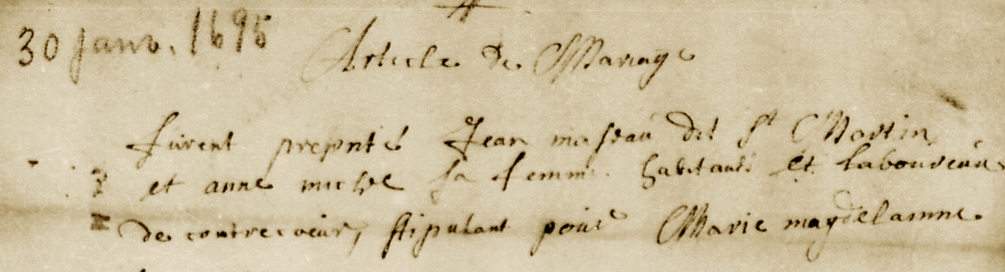 30 janv. 1695
Article de Mariage
furent presnts Jean maseau dit st Martin
et anne michel sa femme habitants et laboureur
de contrecoeur, stipulant pour Marie magdelainne